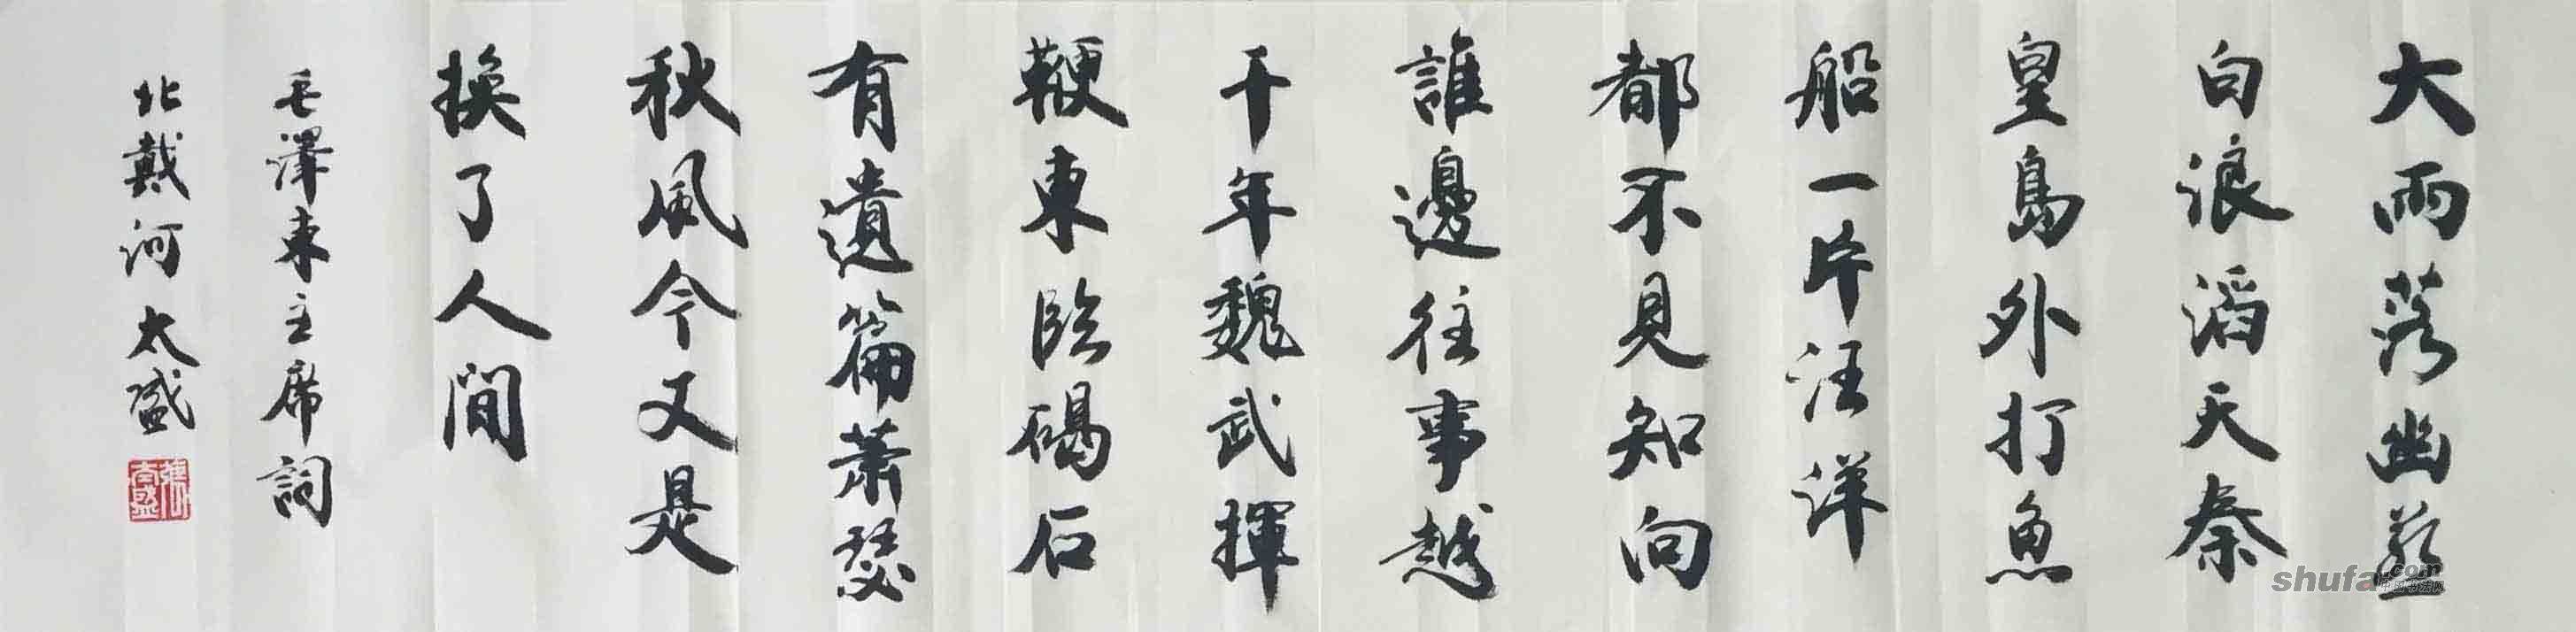 大雨落幽燕
白浪滔天秦
皇島外打魚
船一片汪洋
都不見知向
誰邊往事越
千年魏武揮
鞭東臨碣石
有遺篇蕭瑟
秋風今又是
換了人間
毛澤東主席詞
北戴河 太盛
shufa.com